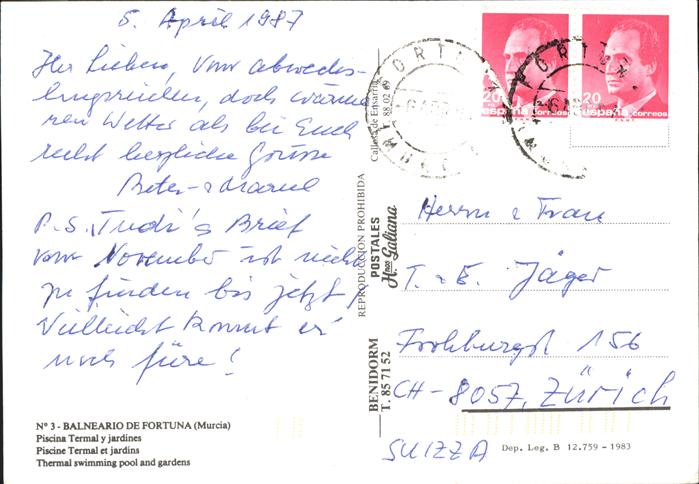 5. April 1987
Ihr Lieben, vom abwechs-
lungsreichen, doch wärme-
ren Wetter als bei Euch
recht herzliche Grüsse
Peter
P.S. Trudi's Brief
vom November ist nicht
zu finden bis jetzt,
Vielleicht kommt er
noch füre!
Nº 3 - BALNEARIO DE FORTUNA (Murcia)
Piscina Termal y jardines
Piscine Termal et jardins
Thermal swimming pool and gardens
T. 88 02 69
REPRODUCCION PROHIBIDA
POSTALES
Hnos Galiana
BENIDORM
T. 85 71 52
20
españa correos
20
españa correos
Herrn & Frau
T. & E. Jäger
Frohburgst 156
CH-8057, Zürich
SUIZZA
Dep. Leg. B 12.759 - 1983